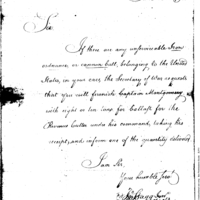 Sir
If there are any unserviceable Iron
ordnance or cannon ball, belonging to the United
States, in your care the Secretary of War requests
that you will furnish Captain Montgomery
with eight or ten tons for ballast for the
Revenue Cutter under his command, taking his
receipt, and inform me of the quantity delivered
I am Sir,
Your humble Serv.t